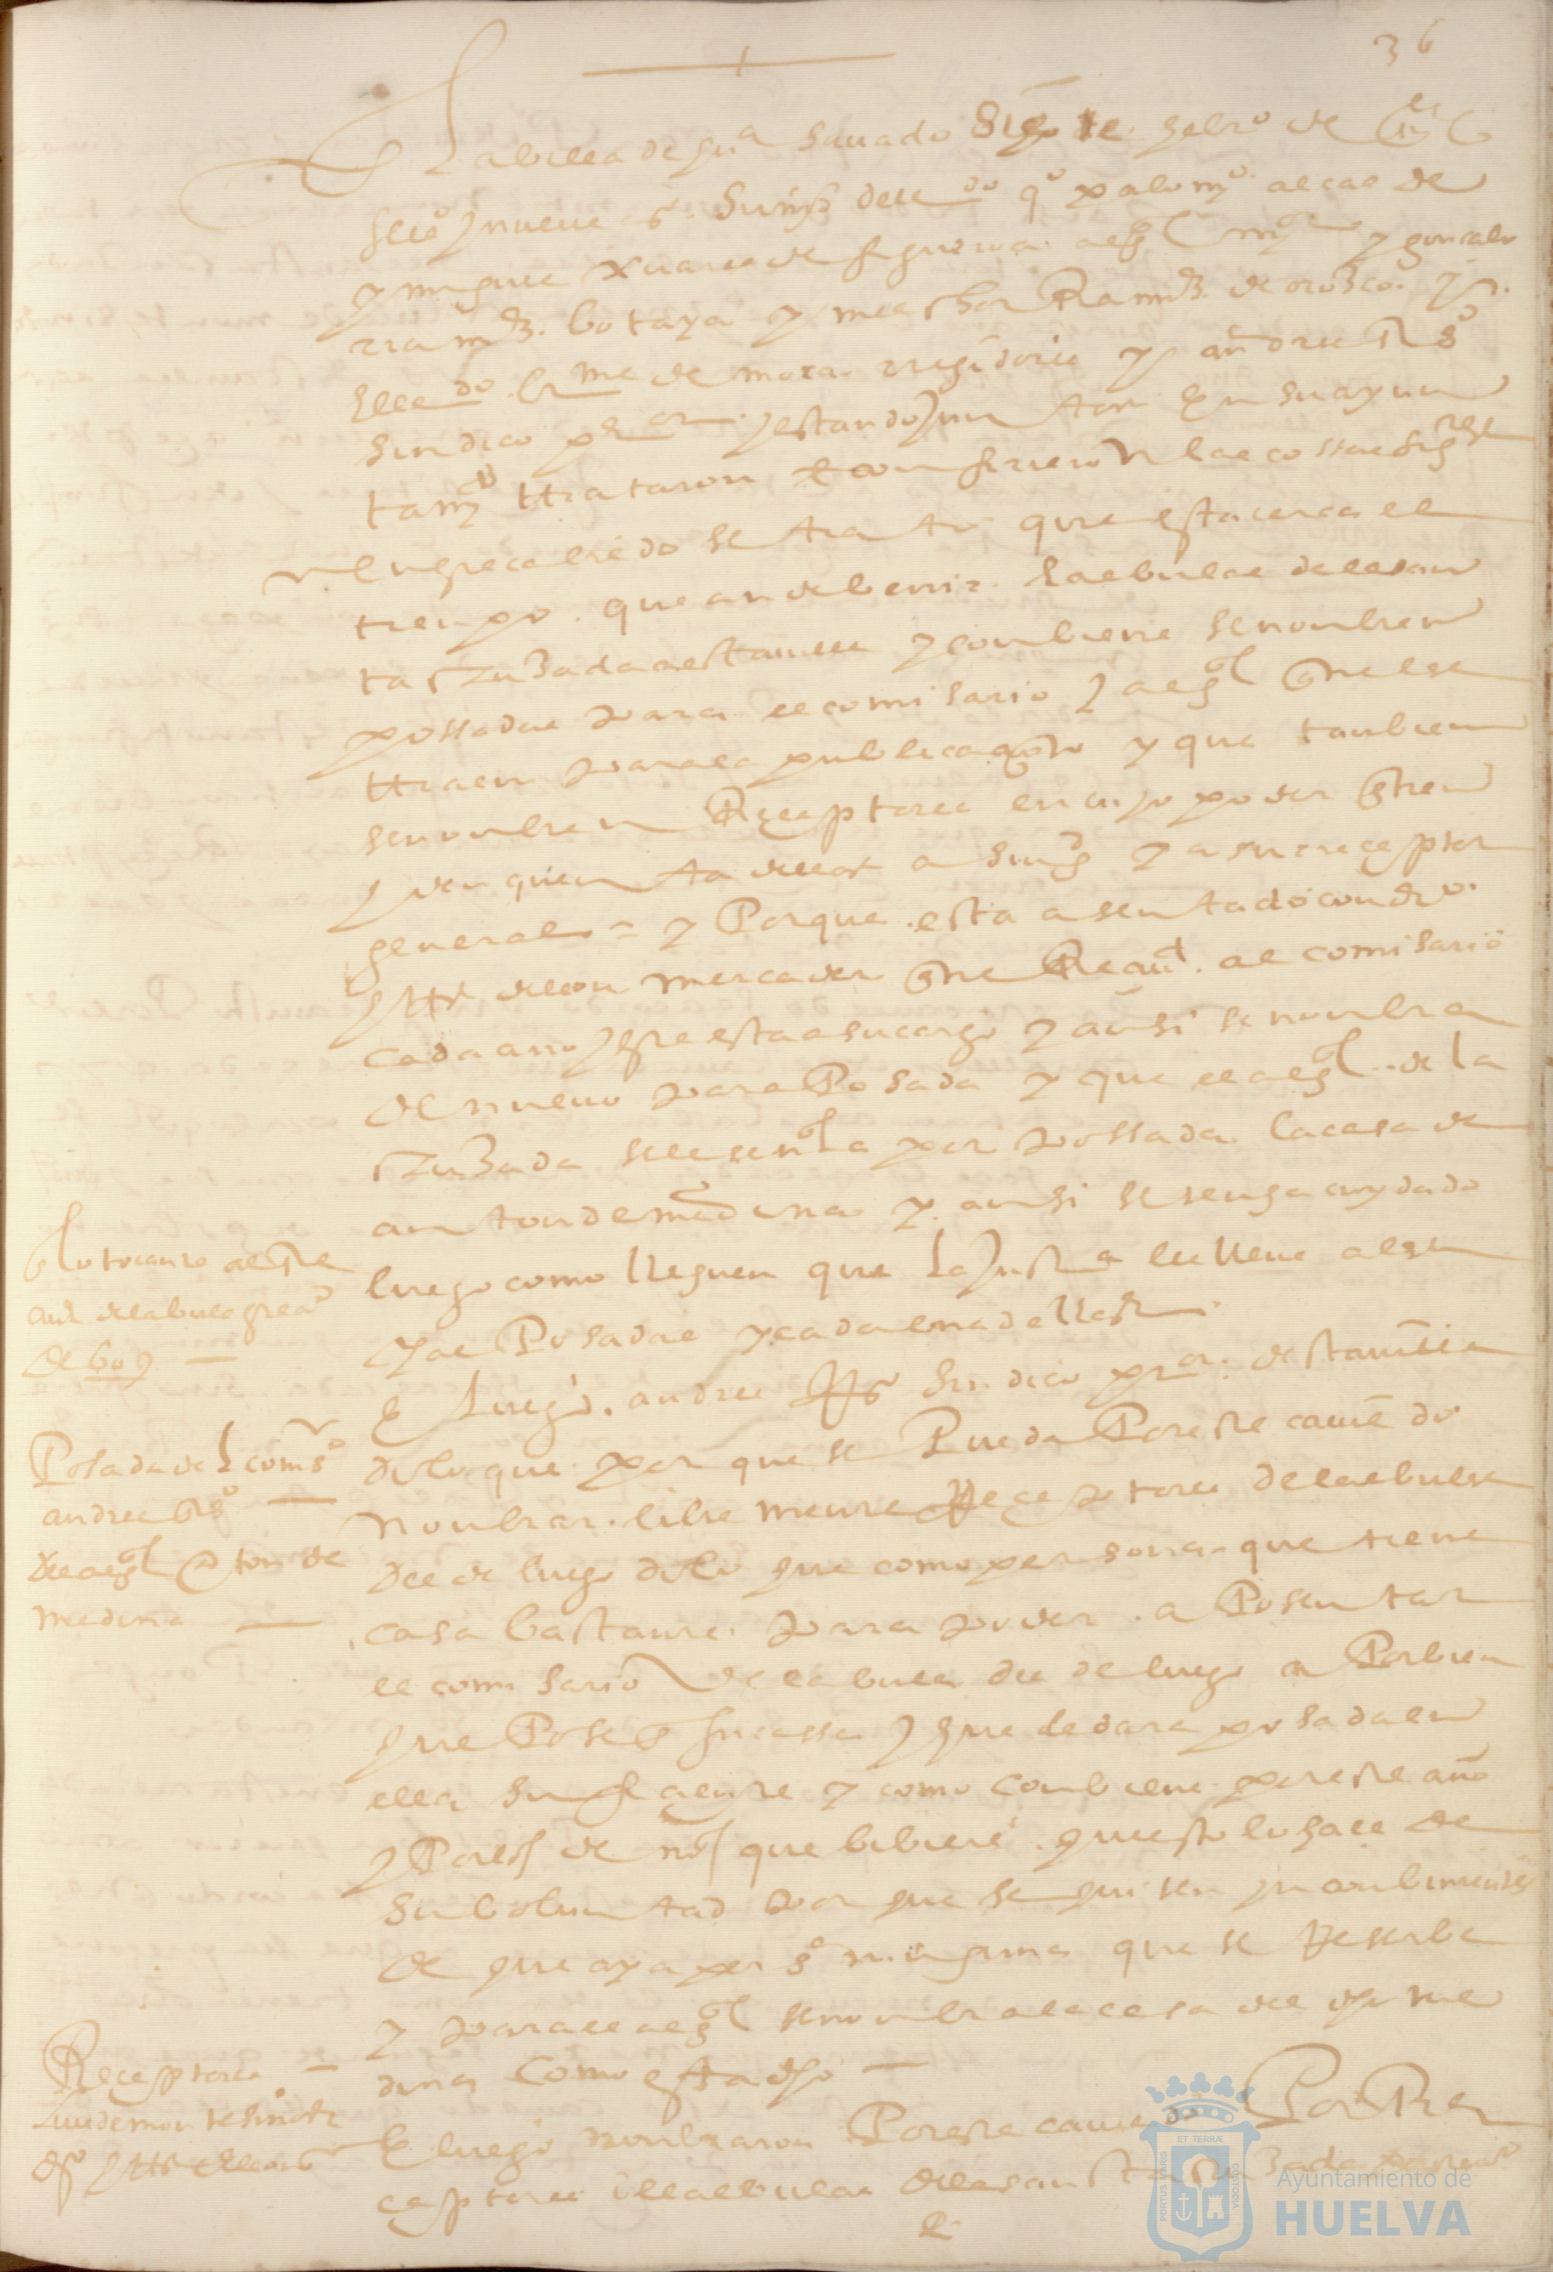 36
En la villa de gu^a savado siete febro de
seis y nueve as. sus mds del ldo go palomo alcalde
y miguel xuarez de figueroa algl mor y gonzalo
rramz. botaya y melchor Ramz. de orozco. y
el ldo brme de mora rregidores y andres
sindico pror y estando juntos en su ayun
tamyo trataron e confirieron las cossas sigtes
en este cabildo se trato que esta cerca el
tienpo que an de benir las bulas de la san
ta cruzada a esta villa y conbiene se nonbren
possadas para el comisario y algl que las
traen para la publicaçion y que tanbien
se nonbren Receptores en cuyo poder
y den quenta dellas a su md y a su receptor
general = y Porque esta asentado con do
mercader que al comisario
cada año y este esta a su cargo y ansi se nonbra
de nuevo para Posada y que el algl de la
cruzada se le señala por possada la casa de
anton de medina y ansi se tenga cuydado
luego como lleguen que la justa les lleve a las
dhas Posadas y cada una dellas
E luego andres sindico pror desta villa
dixo que por que se Pueda Por este cavildo
nonbrar libremente Receptores de las bulas
desde luego dixo que como persona que tiene
casa bastante para poder aPosentar
el comisario de la bula desde luego a Por bien
que Pose en su cassa y que le dara posada en
ella suficiente y como conbiene por este año
y Por los demas que bibiere que esto lo haze de
su boluntad por que se quiten ynconbinientes
de que aya perso ninguna que se Reserbe
y para el algl se nonbra la casa del dho me
dina como esta dho
E luego nonbraron Por este cavildo Por Re
ceptores de las bulas de la santa cruzada
lo tocante al
de la bula
de 609
Posada del comiso
andres
del algl anton de
medina
Receptores
Ayuntamiento de
HUELVA
PORTUS MARIS
ET TERRÆ
CUSTODIA